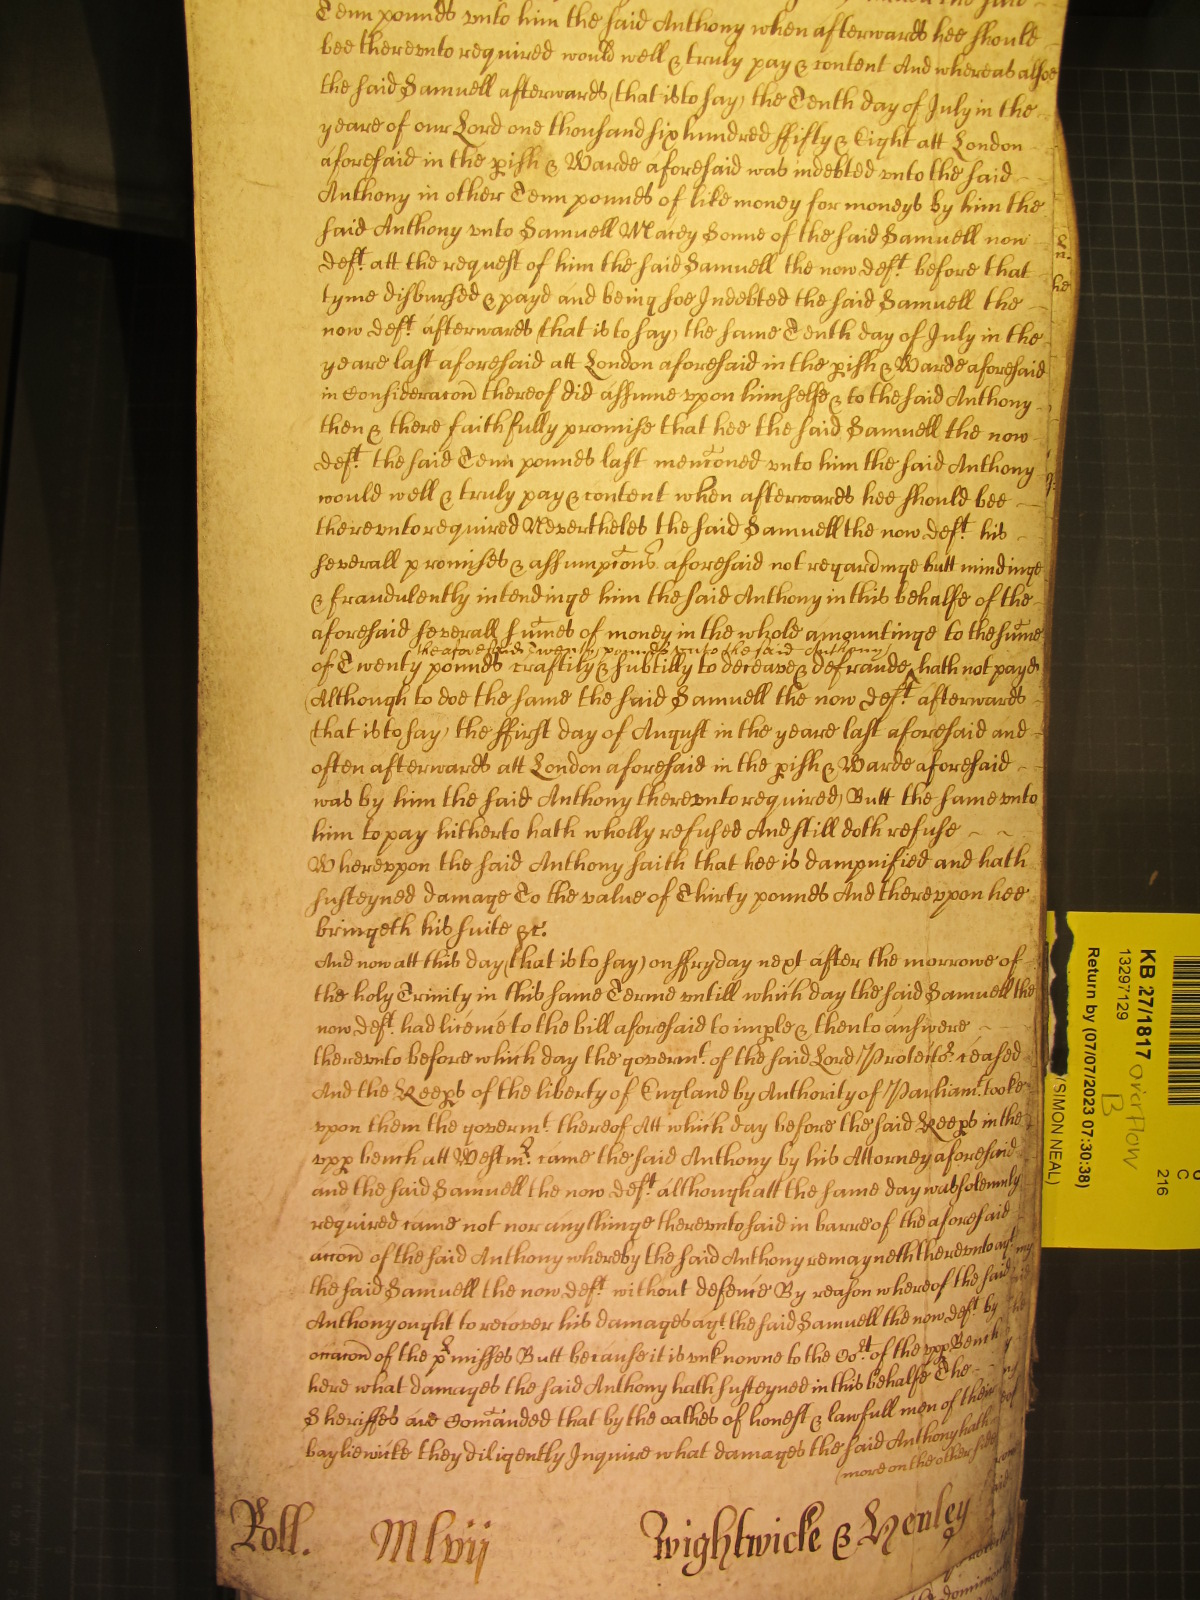 Tenn pounds vnto him the said Anthony when afterwards hee should
bee therevnto required would well & truly pay & content And whereas alsoe
the said Samuell afterwards (that is to say) the Tenth day of July in the
yeare of our Lord one thousand six hundred ffifty & Eight att London
aforesaid in the pish & Warde aforesaid was indebted vnto the said
Anthony in other Tenn pounds of like money for moneys by him the
said Anthony vnto Samuell Macey Sonne of the said Samuell now
deft. att the request of him the said Samuell the now deft. before that
tyme disbursed & payd and being soe Indebted the said Samuell the
now deft. afterwards (that is to say) the same Tenth day of July in the
yeare last aforesaid att London aforesaid in the pish & Warde aforesaid
in Consideracon thereof did assume vpon himselfe & to the said Anthony
then & there faithfully promise that hee the said Samuell the now
deft. the said Tenn pounds last menconed vnto him the said Anthony
would well & truly pay & content when afterwards hee should bee
therevnto required Nevertheles the said Samuell the now deft. his
severall promises & assumpcons aforesaid not regardinge butt mindinge
& fraudulently intendinge him the said Anthony in this behalfe of the
aforesaid severall sumes of money in the whole amountinge to the sume
the aforesaid Twenty pounds vnto the said Anthony
of Twenty pounds craftily & subtilly to deceave & defraude hath not payd
(Although to doe the same the said Samuell the now deft. afterwards
that is to say) the ffirst day of August in the yeare last aforesaid and
often afterwards att London aforesaid in the pish & Warde aforesaid
was by him the said Anthony therevnto required) Butt the same vnto
him to pay hitherto hath wholly refused And still doth refuse
Wherevpon the said Anthony saith that hee is dampnified and hath
susteyned damage To the value of Thirty pounds And therevpon hee
bringeth his suite &c.
And now att this day (that is to say) on ffryday next after the morrowe of
the holy Trinity in this same Terme vntill which day the said Samuell the
now deft. had licence to the bill aforesaid to imple & then to answere
therevnto before which day the governt. of the said Lord Protector ceased
And the Keeps of the liberty of England by Authority of Parliamt. tooke
vpon them the governt. thereof Att which day before the said Keeps in the
vpp bench att Westmr. came the said Anthony by his Attorney aforesaid
and the said Samuell the now deft. although att the same day was solemnly
required came not nor any thinge therevnto said in barre of the aforesaid
accon of the said Anthony whereby the said Anthony remayneth therevnto agt.
the said Samuell the now deft. without defence By reason whereof the said
Anthony ought to recover his damages agt. the said Samuell the now deft. by
occacon of the prmisses Butt because it is vnknowne to the Cort. of the vpp Bench
here what damages the said Anthony hath susteyned in this behalfe The
Sheriffes are Comanded that by the oathes of honest & lawfull men of their
bayliewicke they diligently Inquire what damages the said Anthony hath
(more on the other side
Roll. Mlvij Wightwicke & Henley
KB 27/1817 overflow
13297129 B
Return by (07/07/2023 07:30:38)
SIMON NEAL)
C
216